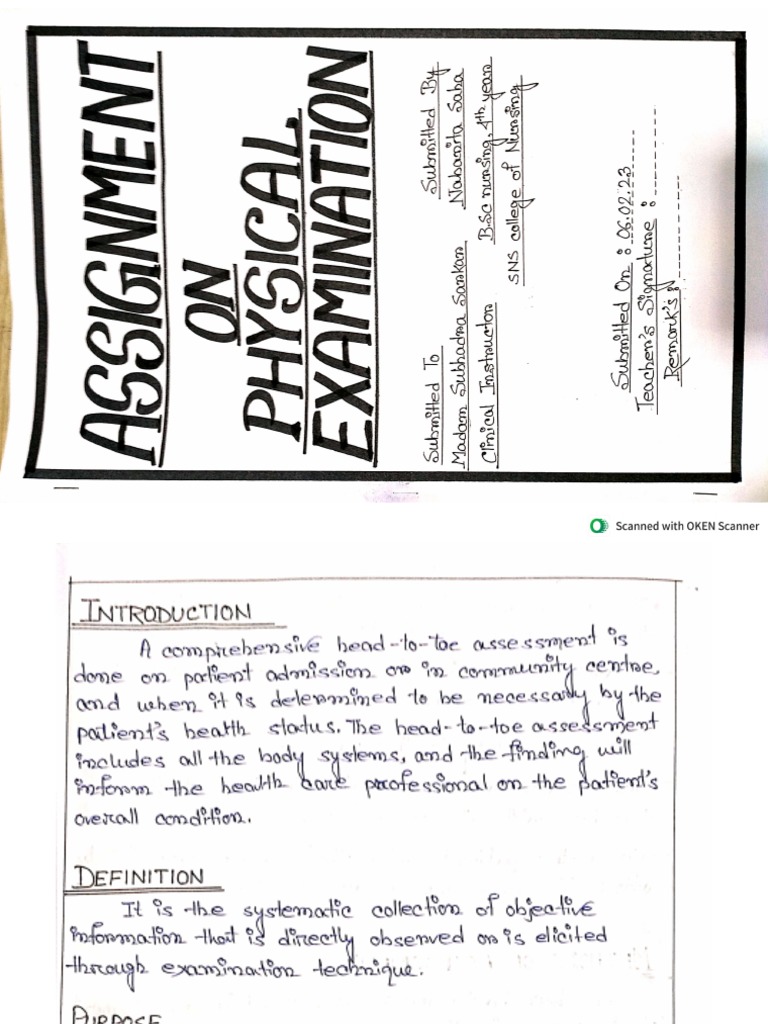 ASSIGNMENT
ON
PHYSICAL
EXAMINATION
Submitted To
Madam Subhadra Sarkar
Clinical Instructor
Submitted By
Nabamita Saha
BSc nursing, 4th year
SNS college of Nursing
Submitted On : 06.02.23
Teacher's Signature :
Remark's :
Scanned with OKEN Scanner
INTRODUCTION
A comprehensive head-to-toe assessment is
done on patient admission or in community centre,
and when it is determined to be necessary by the
patient's health status. The head-to-toe assessment
includes all the body systems, and the finding will
inform the health care professional on the patient's
overall condition.
DEFINITION
It is the systematic collection of objective
information that is directly observed or is elicited
through examination technique.
PURPOSE